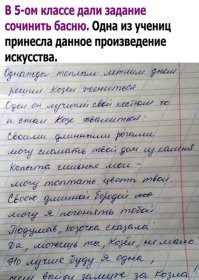 В 5-ом классе дали задание
сочинить басню. Одна из учениц
принесла данное произведение
искусства.
Однажды теплым летним днем
решил Козел жениться
Одел он лучший свой костюм
и стал Козе хвалиться:
Своими длинными рогами
могу сломать твой дом из камня
Копыта сильные мои —
могу топтать цветы твои
Своею длинной бородой
могу я погонять тобой!
Подумав, козочка сказала
Да, можешь ты, Козел, не мало
Но лучше буду я одна,
чем выйду замуж за Козла!